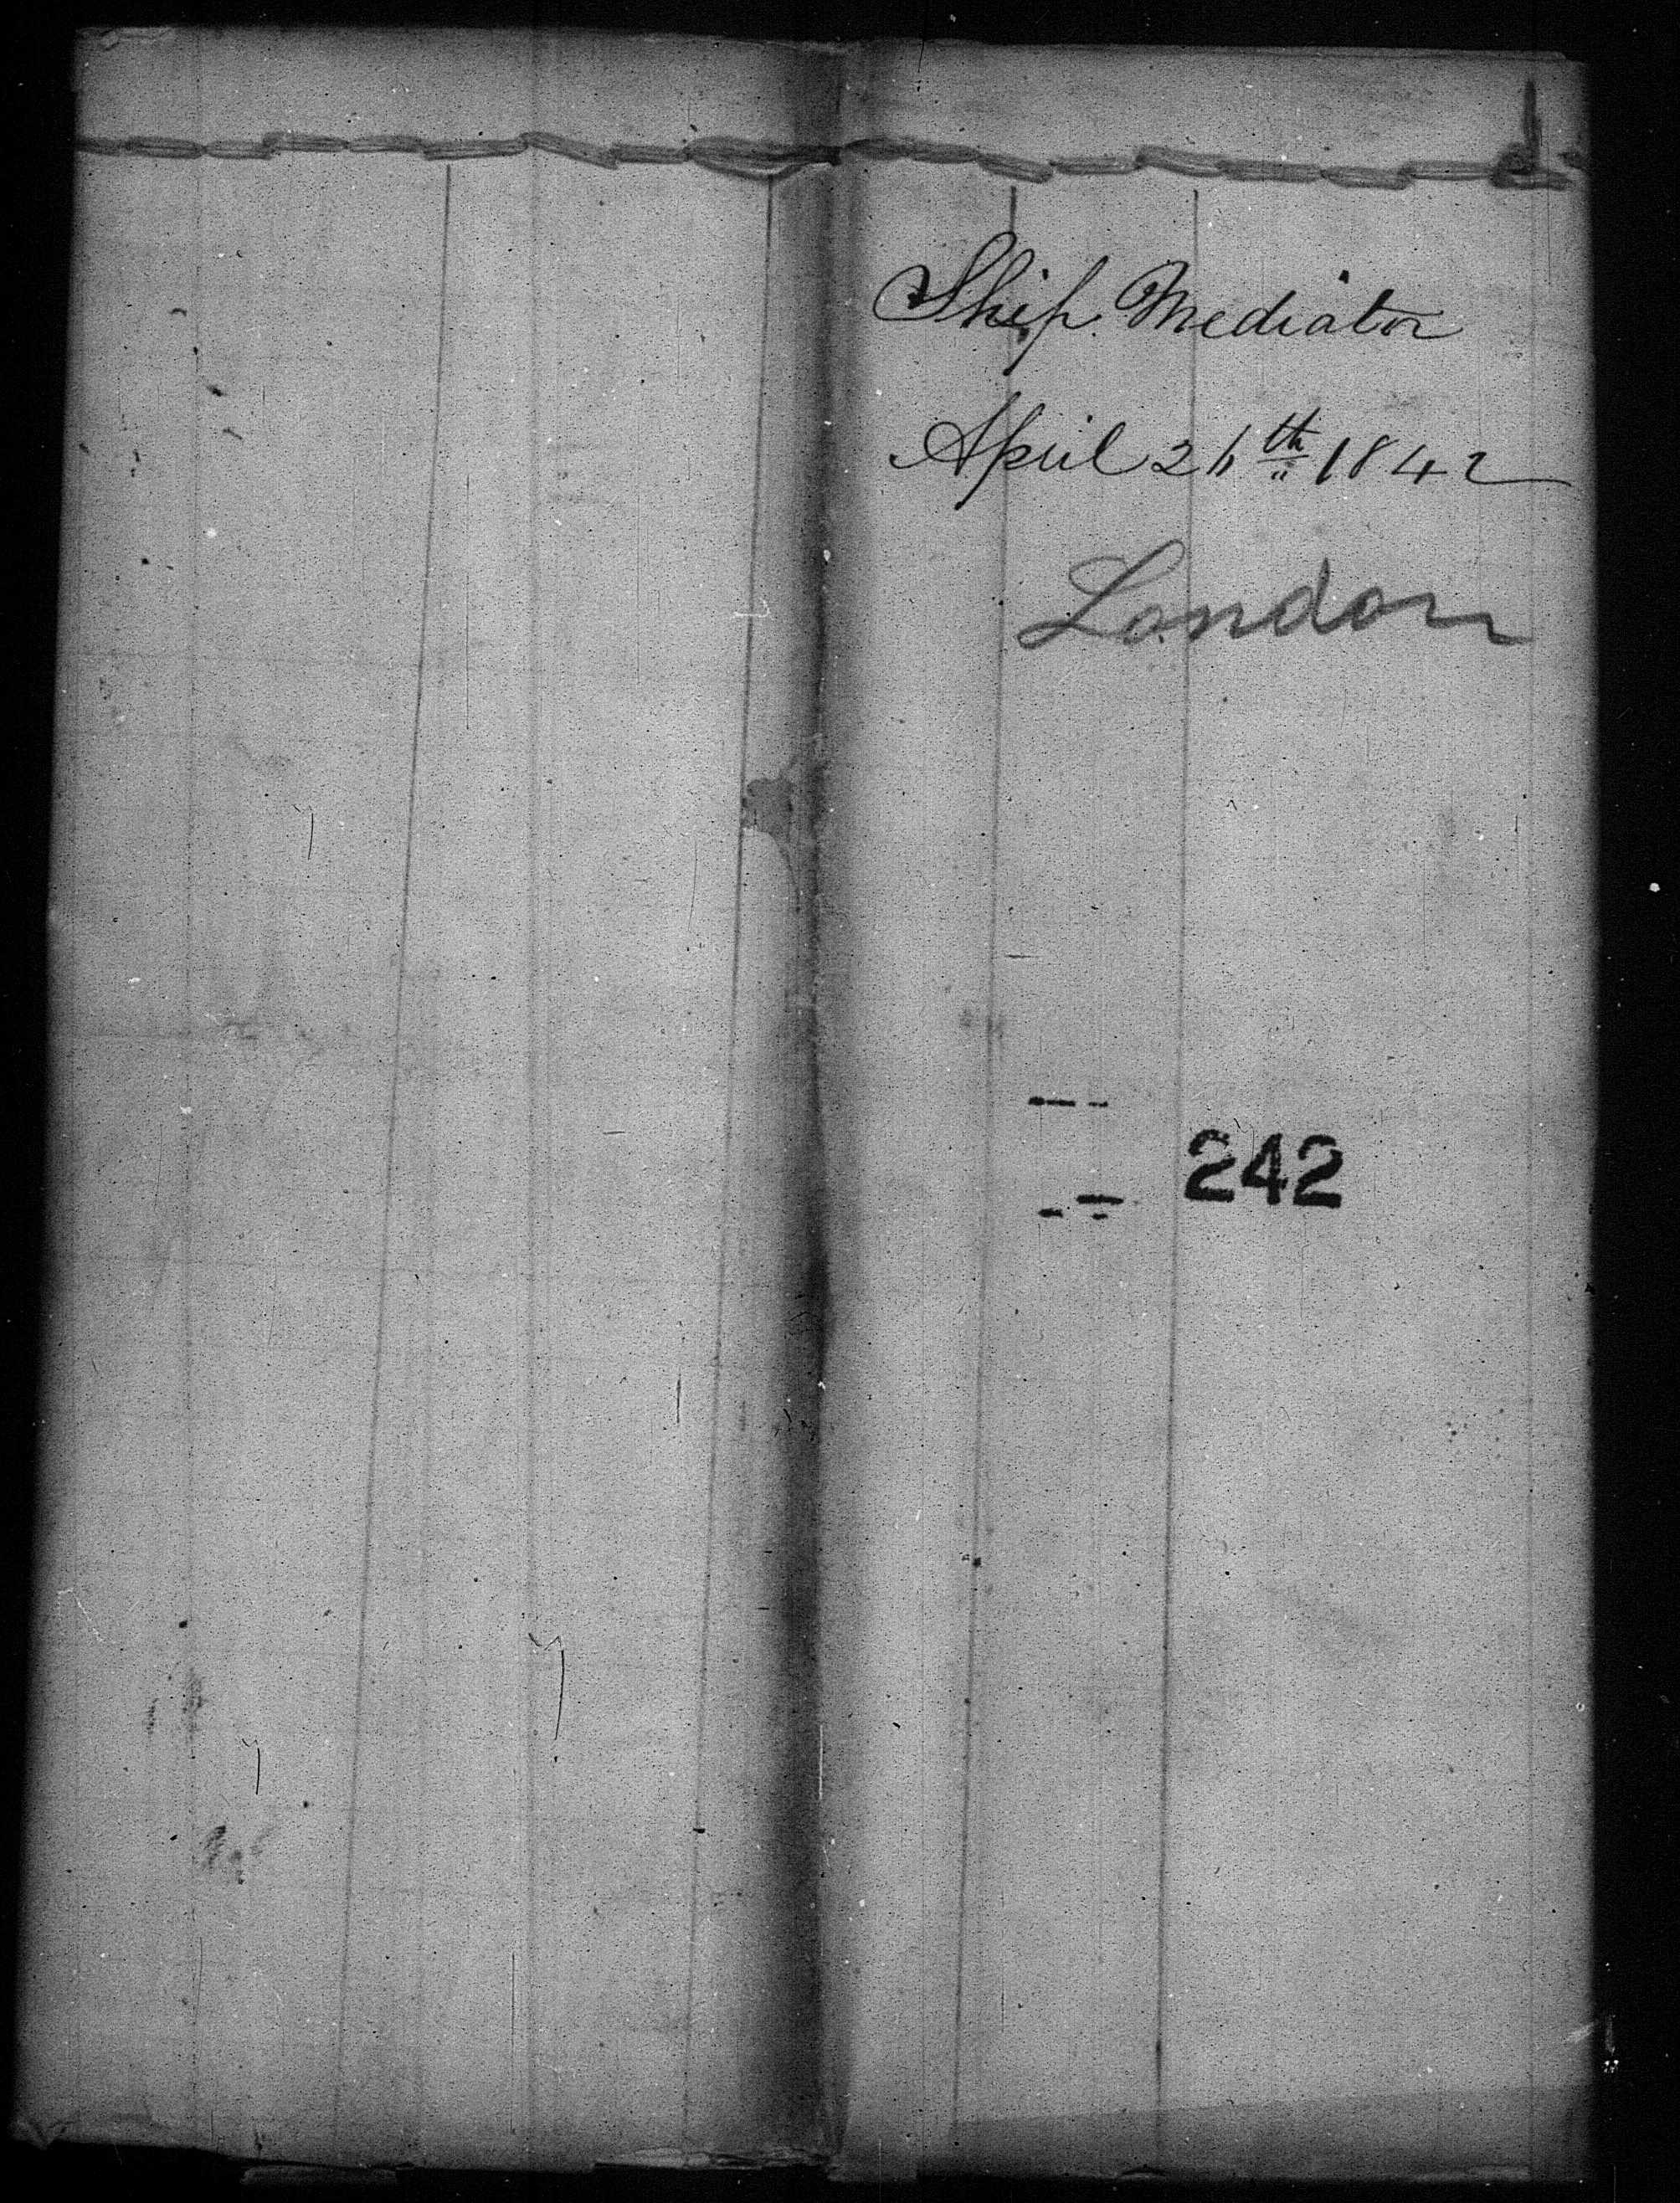 Ship Mediator
April 26th 1842
London
242